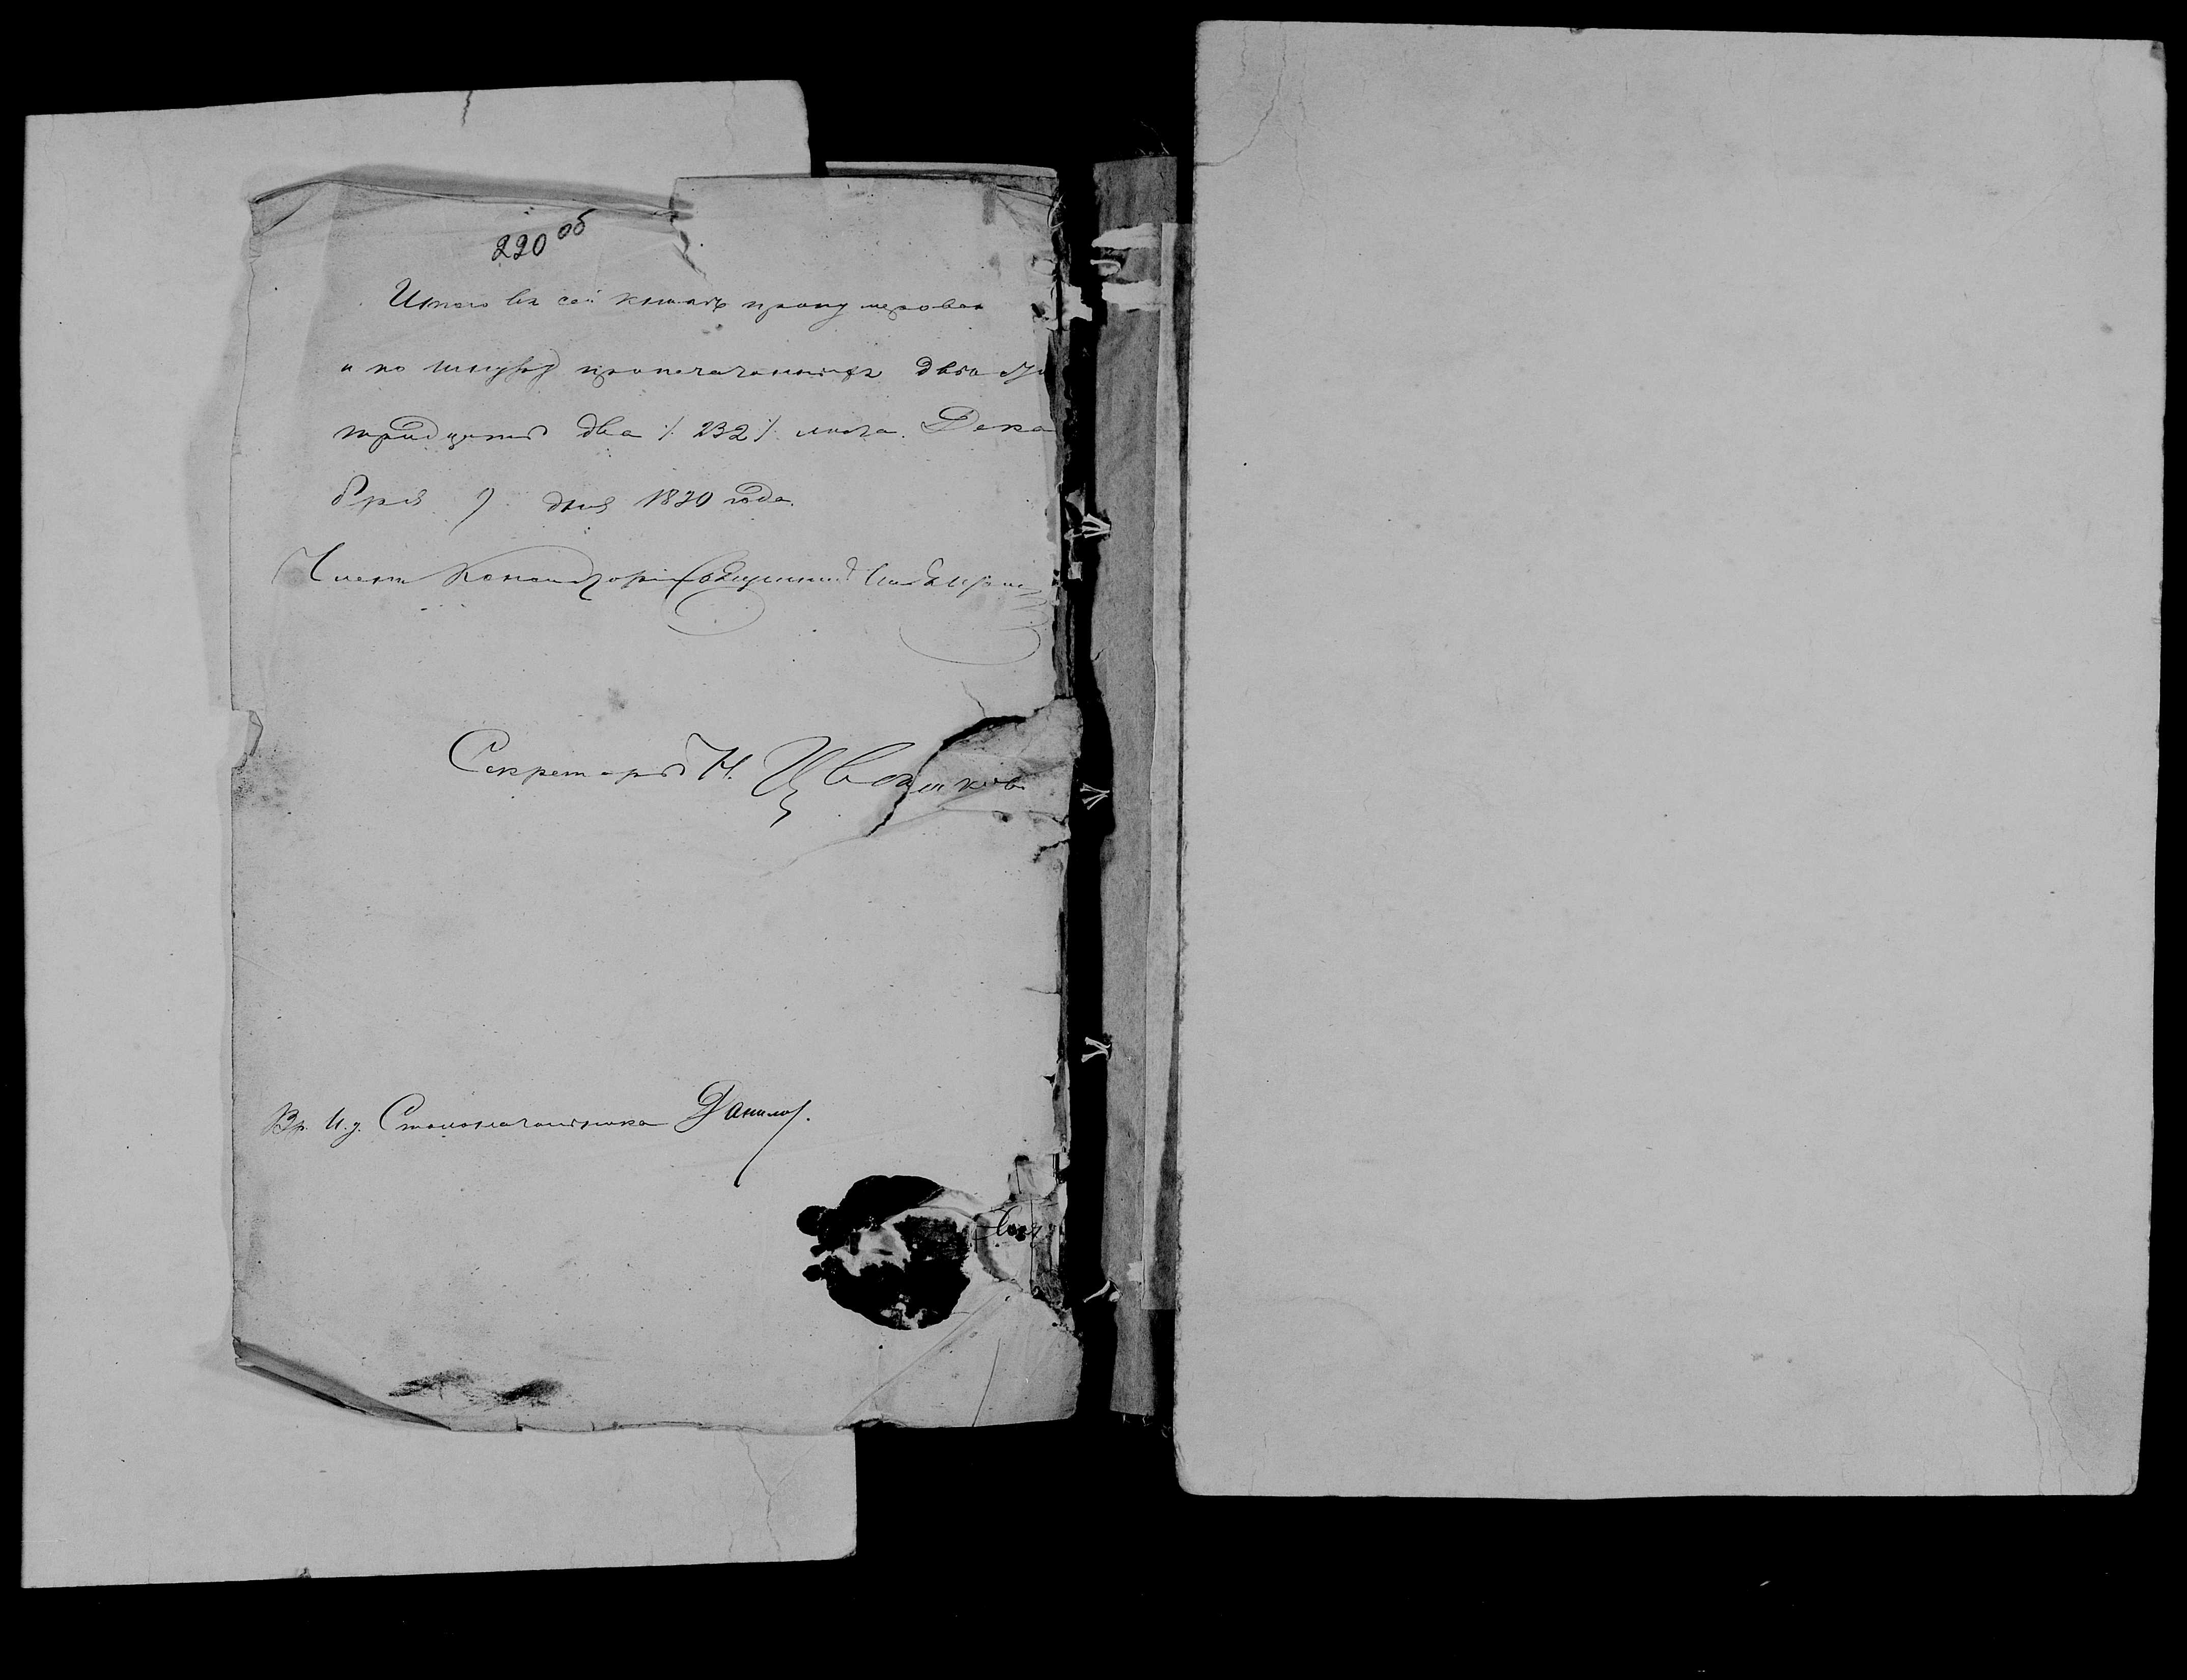 220 об
Итого въ сей книгѣ пронумерован
и по шнуру пропечатанныхъ двѣсти
тридцать два /. 232 /. листа. Дека
бря 9 дня 1890 года.
Членъ Консисторіи Священникъ
Секретарь Н. Цвѣтиков
Вр. И. д. Столоначальника Данилов.